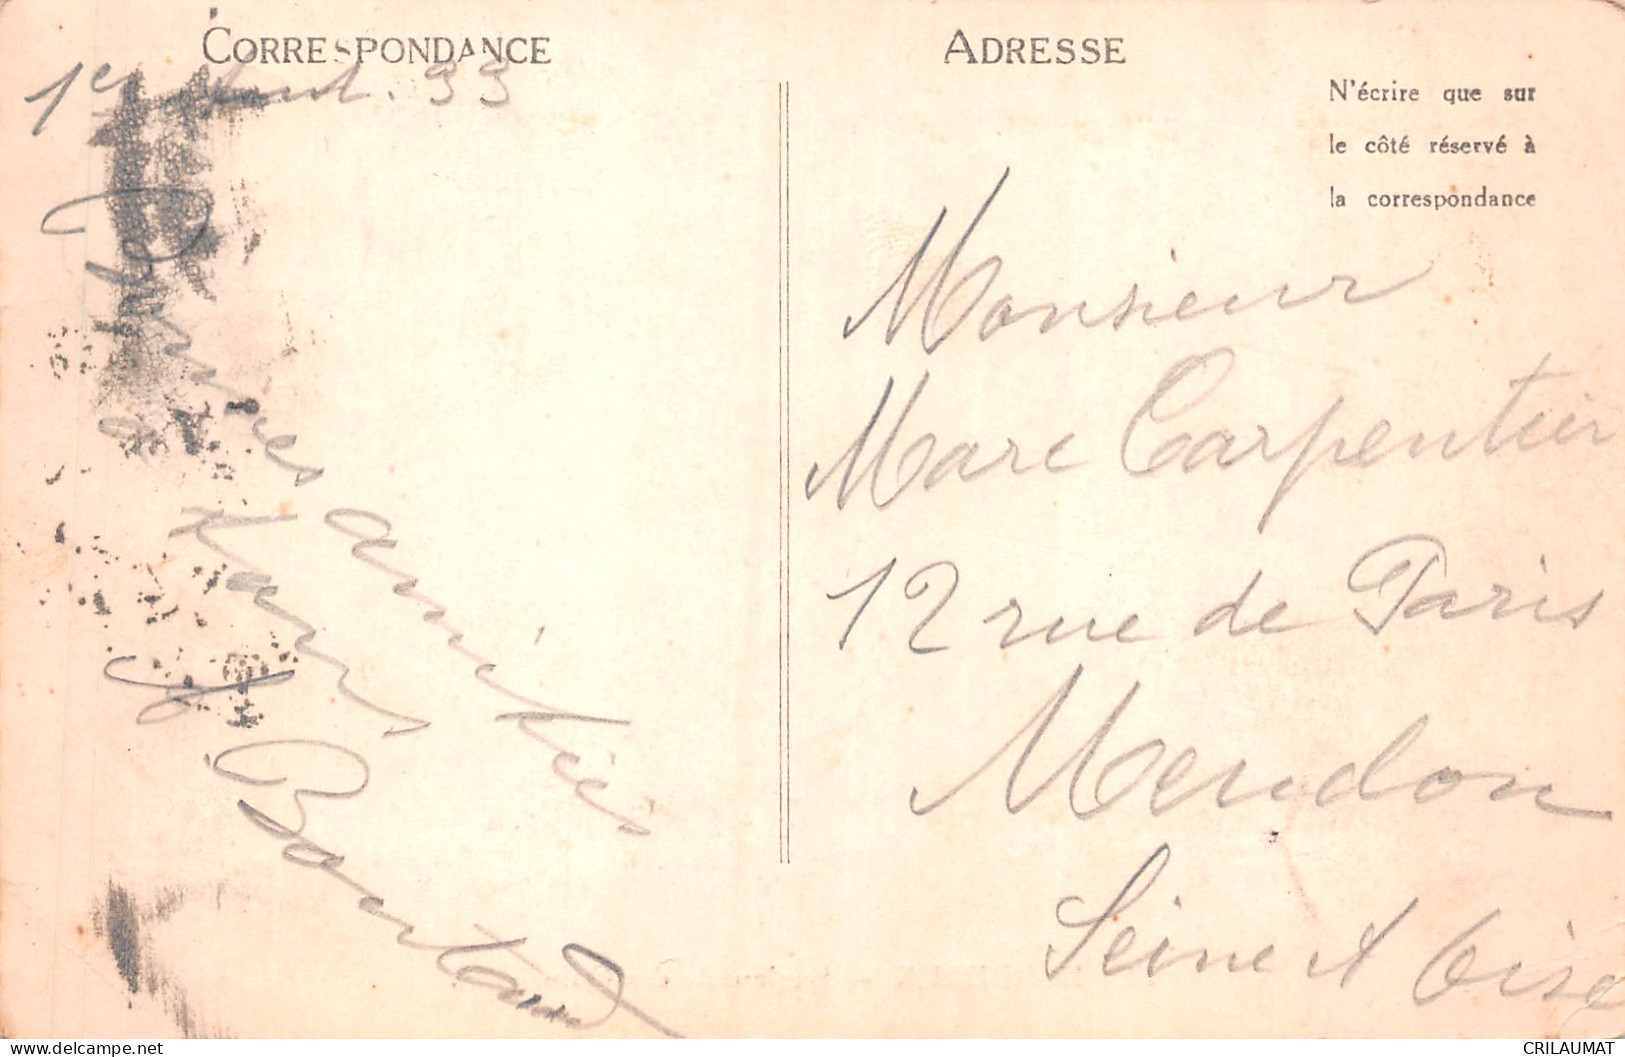 CORRESPONDANCE
1er Aout. 33
amitiés
Boutaud
ADRESSE
N'écrire que sur
le côté réservé à
la correspondance
Monsieur
Marc Carpentier
12 rue de Paris
Meudon
Seine et Oise
CRILAUMAT